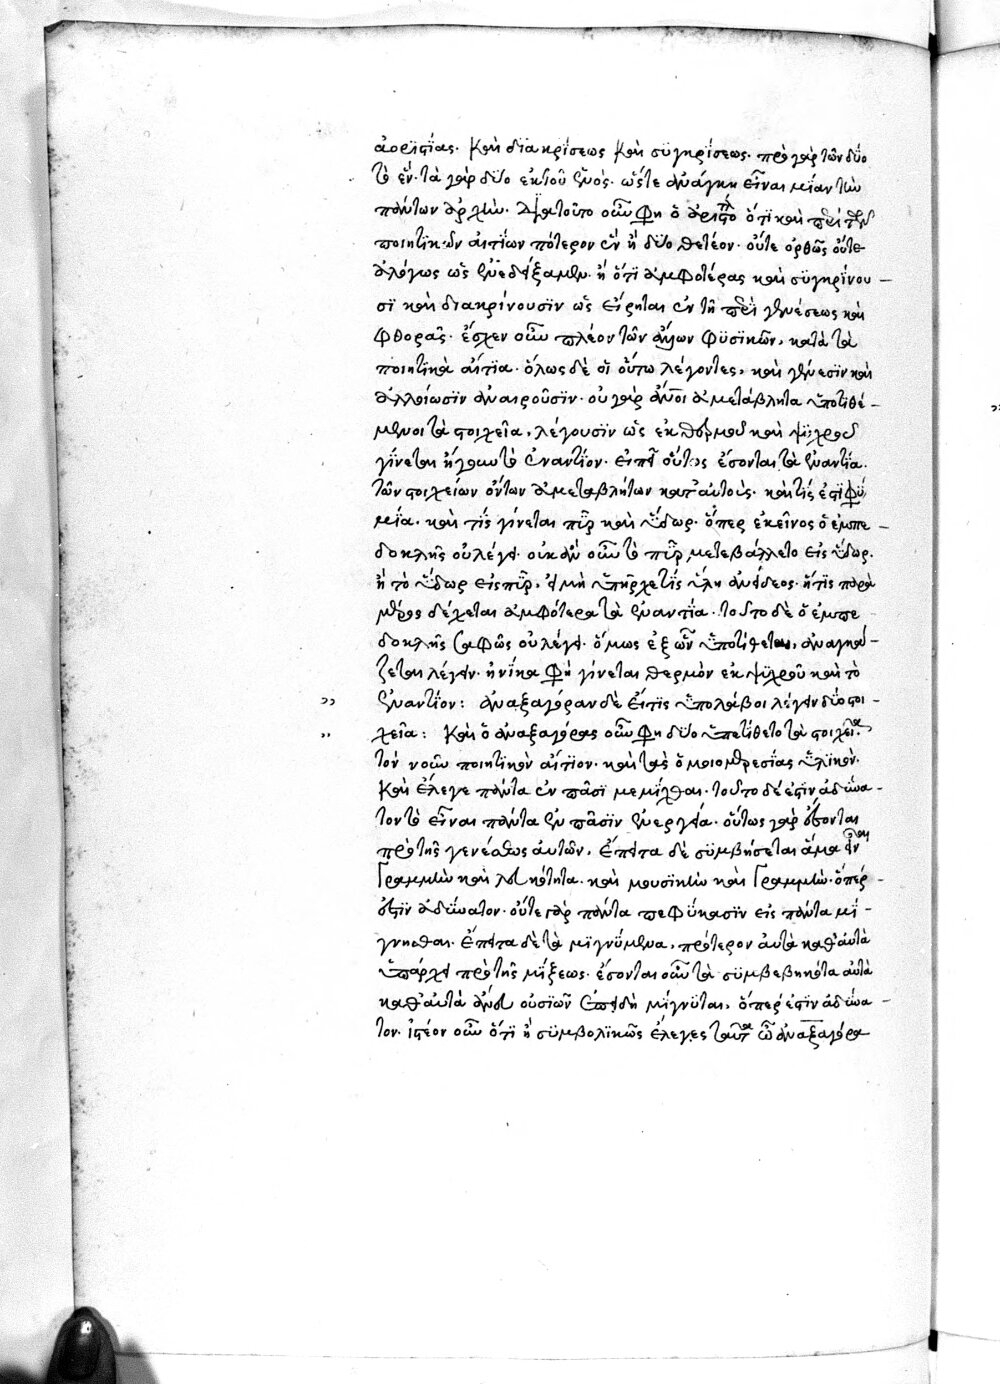 ἀοριστίας. καὶ διακρίσεως καὶ συγκρίσεως. πρὸ γὰρ τῶν δύο
τὸ ἕν. τὰ γὰρ δύο ἐκ τοῦ ἑνός. ὥστε ἀνάγκη εἶναι μίαν τῶν
πάντων ἀρχήν. διὰ τοῦτο οὖν φη ὁ ἀριστο ὅτι καὶ περὶ τῶν
ποιητικῶν αἰτίων πότερον ἓν ἢ δύο θετέον. οὔτε ὀρθῶς οὔτε
ἀλόγως ὡς ἐνεδείξαμεν. ἢ ὅτι ἀμφοτέρας καὶ συγκρίνου
σι καὶ διακρίνουσιν ὡς εἴρηται ἐν τῇ περὶ γενέσεως καὶ
φθορᾶς. ἔσχεν οὖν πλέον τῶν ἄλλων φυσικῶν, κατὰ τὰ
ποιητικὰ αἴτια. ὅλως δὲ οἱ οὕτω λέγοντες, καὶ γένεσιν καὶ
ἀλλοίωσιν ἀναιροῦσιν. οὐ γὰρ ἄνοι ἀμετάβλητα ὑποτιθέ
μενοι τὰ στοιχεῖα, λέγουσιν ὡς ἐκ θερμοῦ καὶ ψυχροῦ
γίνεται ἤγουν τὸ ἐναντίον. ἐπεὶ οὕτως ἔσονται τὰ ἐναντία.
τῶν στοιχείων ὄντων ἀμεταβλήτων κατ' αὐτούς. καὶ τίς ἐστι φύ
μία. καὶ τίς γίνεται πῦρ καὶ ὕδωρ. ὅπερ ἐκεῖνος ὁ ἐμπε
δοκλῆς οὐ λέγει. οὐκ ἂν οὖν τὸ πῦρ μετεβάλλετο εἰς ὕδωρ.
ἢ τὸ ὕδωρ εἰς πῦρ, εἰ μὴ ὑπῆρχε τίς ὕλη ἀνείδεος. ἥτις παρὰ
μέρος δέχεται ἀμφότερα τὰ ἐναντία. τοῦτο δὲ ὁ ἐμπε
δοκλῆς σαφῶς οὐ λέγει. ὅμως ἐξ ὧν ὑποτίθεται, ἀναγκά
ζεται λέγειν. ἡνίκα φη γίνεται θερμὸν ἐκ ψυχροῦ καὶ τὸ
ἐναντίον: ἀναξαγόραν δὲ εἴ τις ὑπολάβοι λέγειν δύο στοι
χεῖα: καὶ ὁ ἀναξαγόρας οὖν φη δύο ὑπετίθετο τὰ στοιχεῖα.
τὸν νοῦν ποιητικὸν αἴτιον. καὶ τὰς ὁμοιομερείας ὑλικόν.
καὶ ἔλεγε πάντα ἐν πᾶσι μεμίχθαι. τοῦτο δέ ἐστιν ἀδύνα
τον τὸ εἶναι πάντα ἐν πᾶσιν ἐνεργείᾳ. οὕτως γὰρ ἔσονται
πρὸ τῆς γενέσεως αὐτῶν. ἔπειτα δὲ συμβήσεται ἅμα εἶναι
γραμμὴν καὶ λευκότητα. καὶ μουσικὴν καὶ γραμμήν. ὅπερ
ἐστὶν ἀδύνατον. οὔτε γὰρ πάντα πεφύκασιν εἰς πάντα μί
γνυσθαι. ἔπειτα δὲ τὰ μιγνύμενα, πρότερον αὐτὰ καθ' αὑτὰ
ὑπάρχει πρὸ τῆς μίξεως. ἔσονται οὖν τὰ συμβεβηκότα αὐτὰ
καθ' αὑτὰ ἄνευ οὐσιῶν ἐπειδὴ μίγνυται, ὅπερ ἐστὶν ἀδύνα
τον. ἰστέον οὖν ὅτι ἢ συμβολικῶς ἔλεγες ταῦτα ὦ ἀναξαγόρα